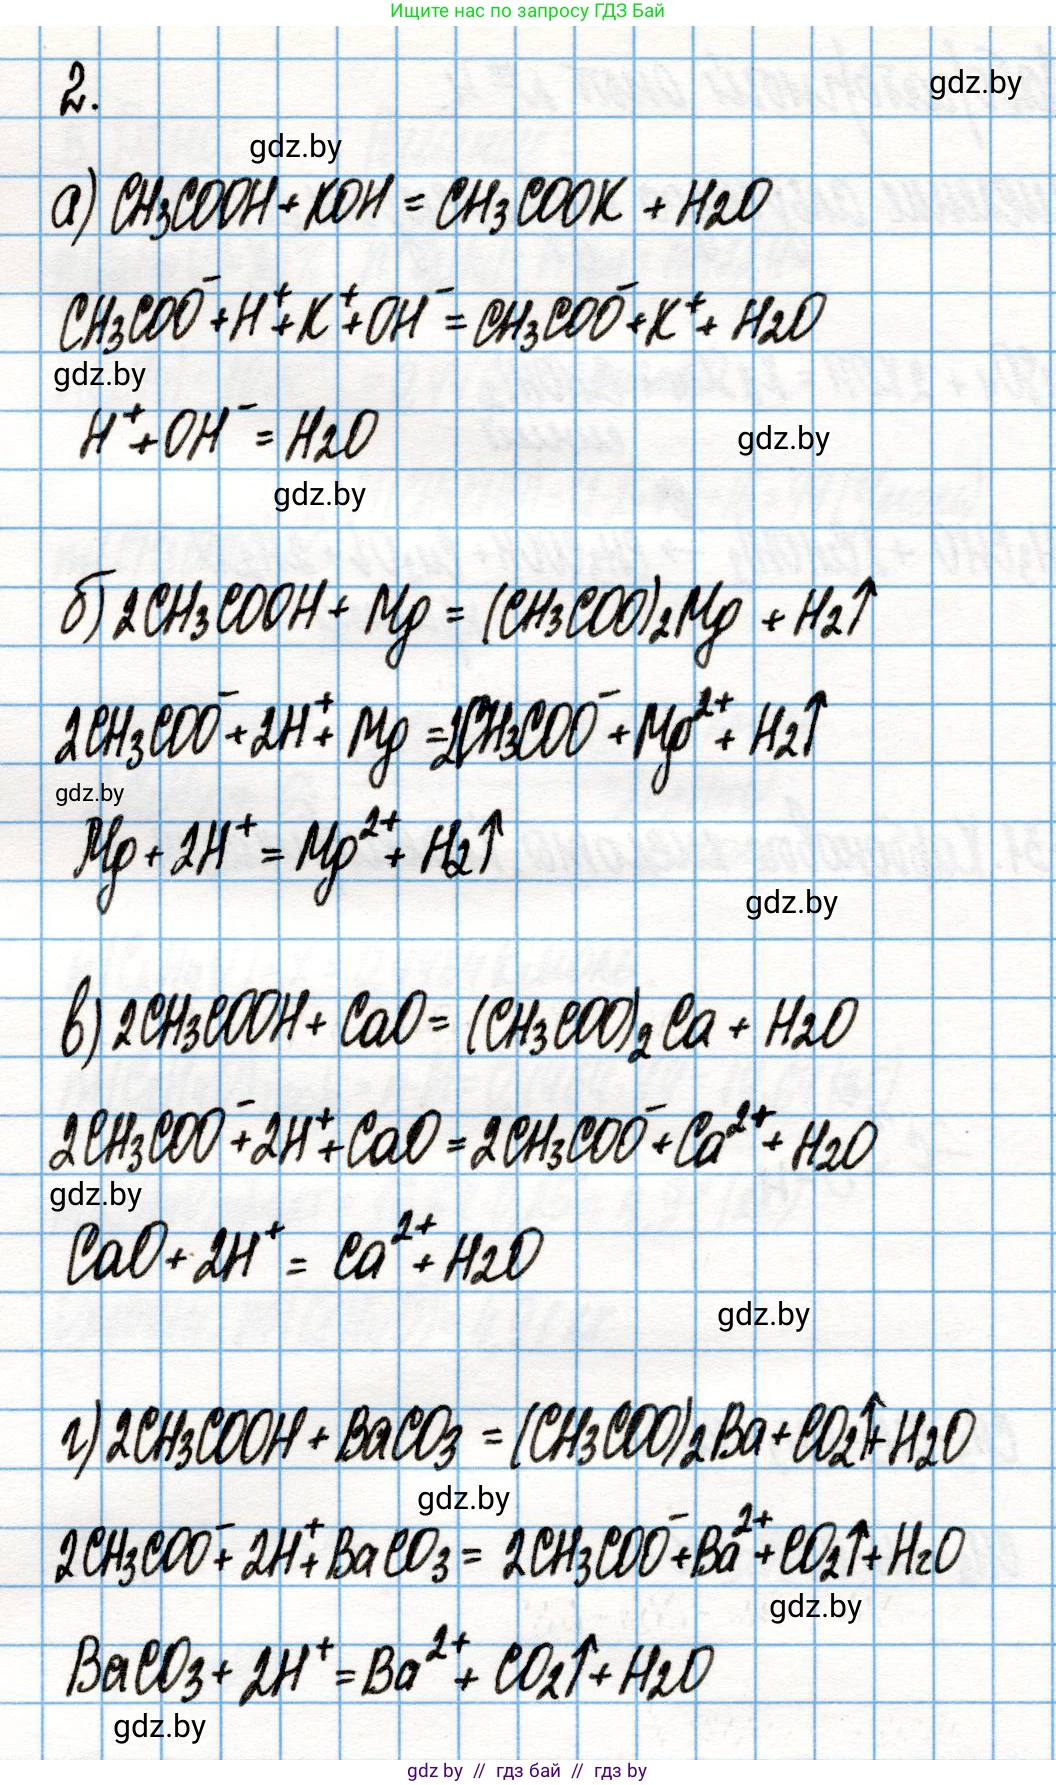 Ищите нас по запросу ГДЗ Бай
2.
gdz.by
gdz.by
а) CH₃COOH + KOH = CH₃COOK + H₂O
CH₃COO⁻ + H⁺ + K⁺ + OH⁻ = CH₃COO⁻ + K⁺ + H₂O
gdz.by
H⁺ + OH⁻ = H₂O
gdz.by
gdz.by
б) 2CH₃COOH + Mg = (CH₃COO)₂Mg + H₂↑
2CH₃COO⁻ + 2H⁺ + Mg = 2CH₃COO⁻ + Mg²⁺ + H₂↑
gdz.by
Mg + 2H⁺ = Mg²⁺ + H₂↑
gdz.by
в) 2CH₃COOH + CaO = (CH₃COO)₂Ca + H₂O
2CH₃COO⁻ + 2H⁺ + CaO = 2CH₃COO⁻ + Ca²⁺ + H₂O
gdz.by
CaO + 2H⁺ = Ca²⁺ + H₂O
gdz.by
г) 2CH₃COOH + BaCO₃ = (CH₃COO)₂Ba + CO₂↑ + H₂O
gdz.by
2CH₃COO⁻ + 2H⁺ + BaCO₃ = 2CH₃COO⁻ + Ba²⁺ + CO₂↑ + H₂O
gdz.by
BaCO₃ + 2H⁺ = Ba²⁺ + CO₂↑ + H₂O
gdz.by
gdz by // гдз бай // гдз by